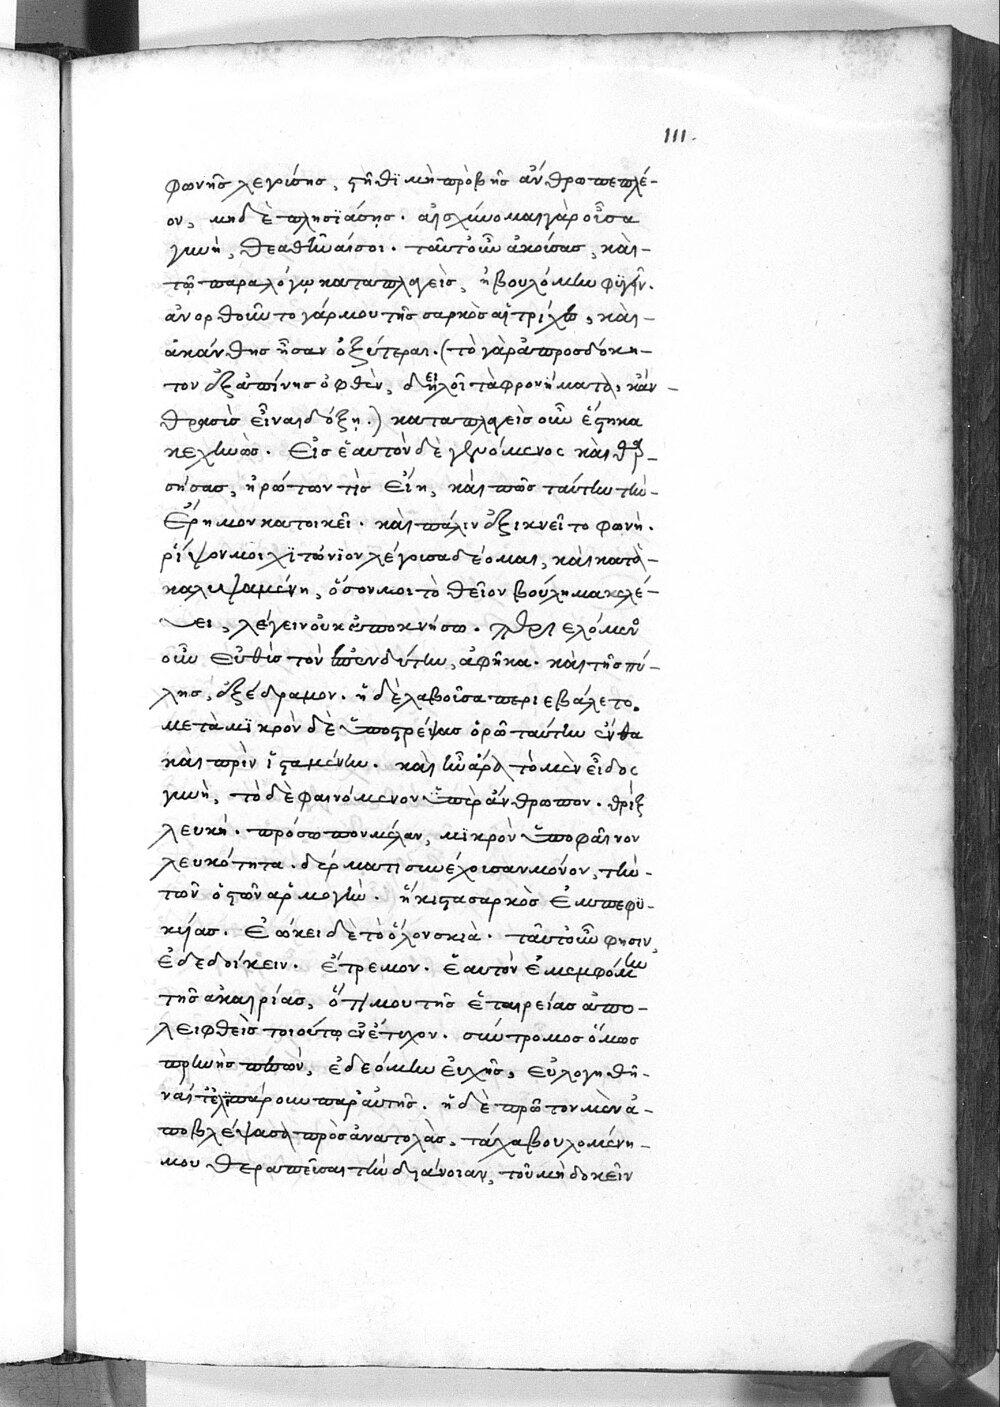 111.
φωνῆς λεγούσης, στῆθι μὴ προβῇς ἄνθρωπε πλέ-
ον, μηδὲ πλησϊάσῃς. αἰσχύνομαι γὰρ οὖσα
γυνὴ, θεαθῆναί σοι. ταῦτ' οὖν ἀκούσας, καὶ
τῷ παραλόγῳ καταπλαγεὶς, ἠβουλόμην φϋγεῖν.
ἀνορθοῦντο γάρ μου τῆς σαρκὸς αἱ τρίχες, καὶ
ἀκάνθης ἦσαν ὀξύτεραι. (τὸ γὰρ ἀπροσδόκη-
τον ἐξαπίνης ὀφθὲν, δειλοῖ τὰ φρονήματα, κἂν
θρασὺς εἶναι δόξῃ.) καταπλαγεὶς οὖν ἔστηκα
κεχηνώς. εἰς ἑαυτὸν δὲ γενόμενος καὶ θαρ-
σήσας, ἠρώτων τὶς εἴη, καὶ πῶς ταύτην τὴν
ἔρημον κατοικεῖ. καὶ πάλιν ἐξικνεῖτο φωνὴ.
ῥίψον μοι χϊτώνϊον λέγουσα δέομαι, καὶ κατα-
καλυψαμένη, ὅσον μοι τὸ θεῖον βούλημα κελέ-
ύει, λέγειν οὐκ ἀποκνήσω. περιελόμενος
οὖν εὐθὺς τὸν ἐπενδύτην, ἀφῆκα. καὶ τῆς πύ-
λης, ἐξέδραμον. ἡ δὲ λαβοῦσα περιεβάλετο.
μετὰ μϊκρὸν δὲ ὑποστρέψας ὁρῶ ταύτην ἔνθα
καὶ πρὶν ἱσταμένην. καὶ ἦν ἄρα τὸ μὲν εἶδος
γυνὴ, τὸ δὲ φαινόμενον ὑπὲρ ἄνθρωπον. θρὶξ
λευκή. πρόσωπον μέλαν, μϊκρὸν ὑποφαῖνον
λευκότητα. δέρματι συνέχουσαν μόνον, τὴν
τῶν ὀστῶν ἁρμογὴν. ἥκιστα σαρκὸς ἐμπεφυ-
κυίας. ἐῴκει δὲ τὸ ὅλον σκιᾷ. ταῦτ' οὖν φησιν,
ἐδεδοίκειν. ἔτρεμον. ἑαυτὸν ἐμεμφόμην
τῆς ἀκαιρίας, ὅτι μου τῆς ἑταιρείας ἀπο-
λειφθεὶς τοιούτῳ ἐνέτυχον. σύντρομος ὅμως
πρηνὴς πεσὼν, ἐδεόμην εὐχῆς, εὐλογηθῆ-
ναί τε λϊπάρουν παρ' αὐτῆς. ἡ δὲ πρῶτον μὲν ἀ-
ποβλέψασα πρὸς ἀνατολὰς, τάχα βουλομένη
μου θεραπεῦσαι τὴν διάνοιαν, τοῦ μὴ δοκεῖν